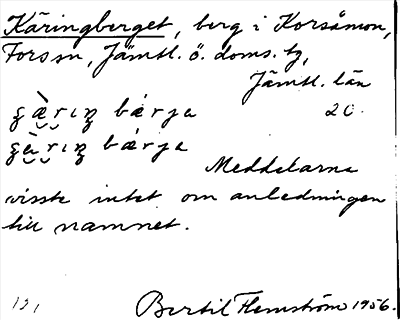 Käringberget, berg i Korsåmon,
Fors sn, Jämtl. ö. doms. tg,
Jämtl. län
20.
bárja
bárja
Meddelarna
visste intet om anledningen
till namnet.
Bertil Flemström 1956.